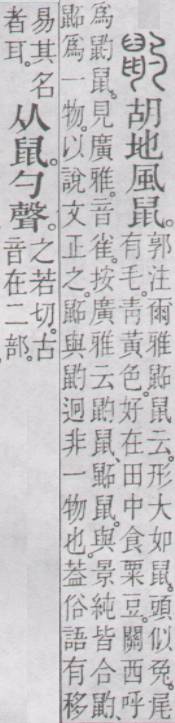 䶂 胡地風鼠。郭注爾雅鼫鼠云。形大如鼠。頭似兔。尾
有毛。青黃色。好在田中食粟豆。關西呼
爲䶂鼠。見廣雅。音雀。按廣雅云䶂鼠、鼫鼠。與景純皆合䶂
鼫爲一物。以說文正之。鼫與䶂迥非一物也。葢俗語有移
易其名者耳。从鼠。勺聲。之若切。古音在二部。